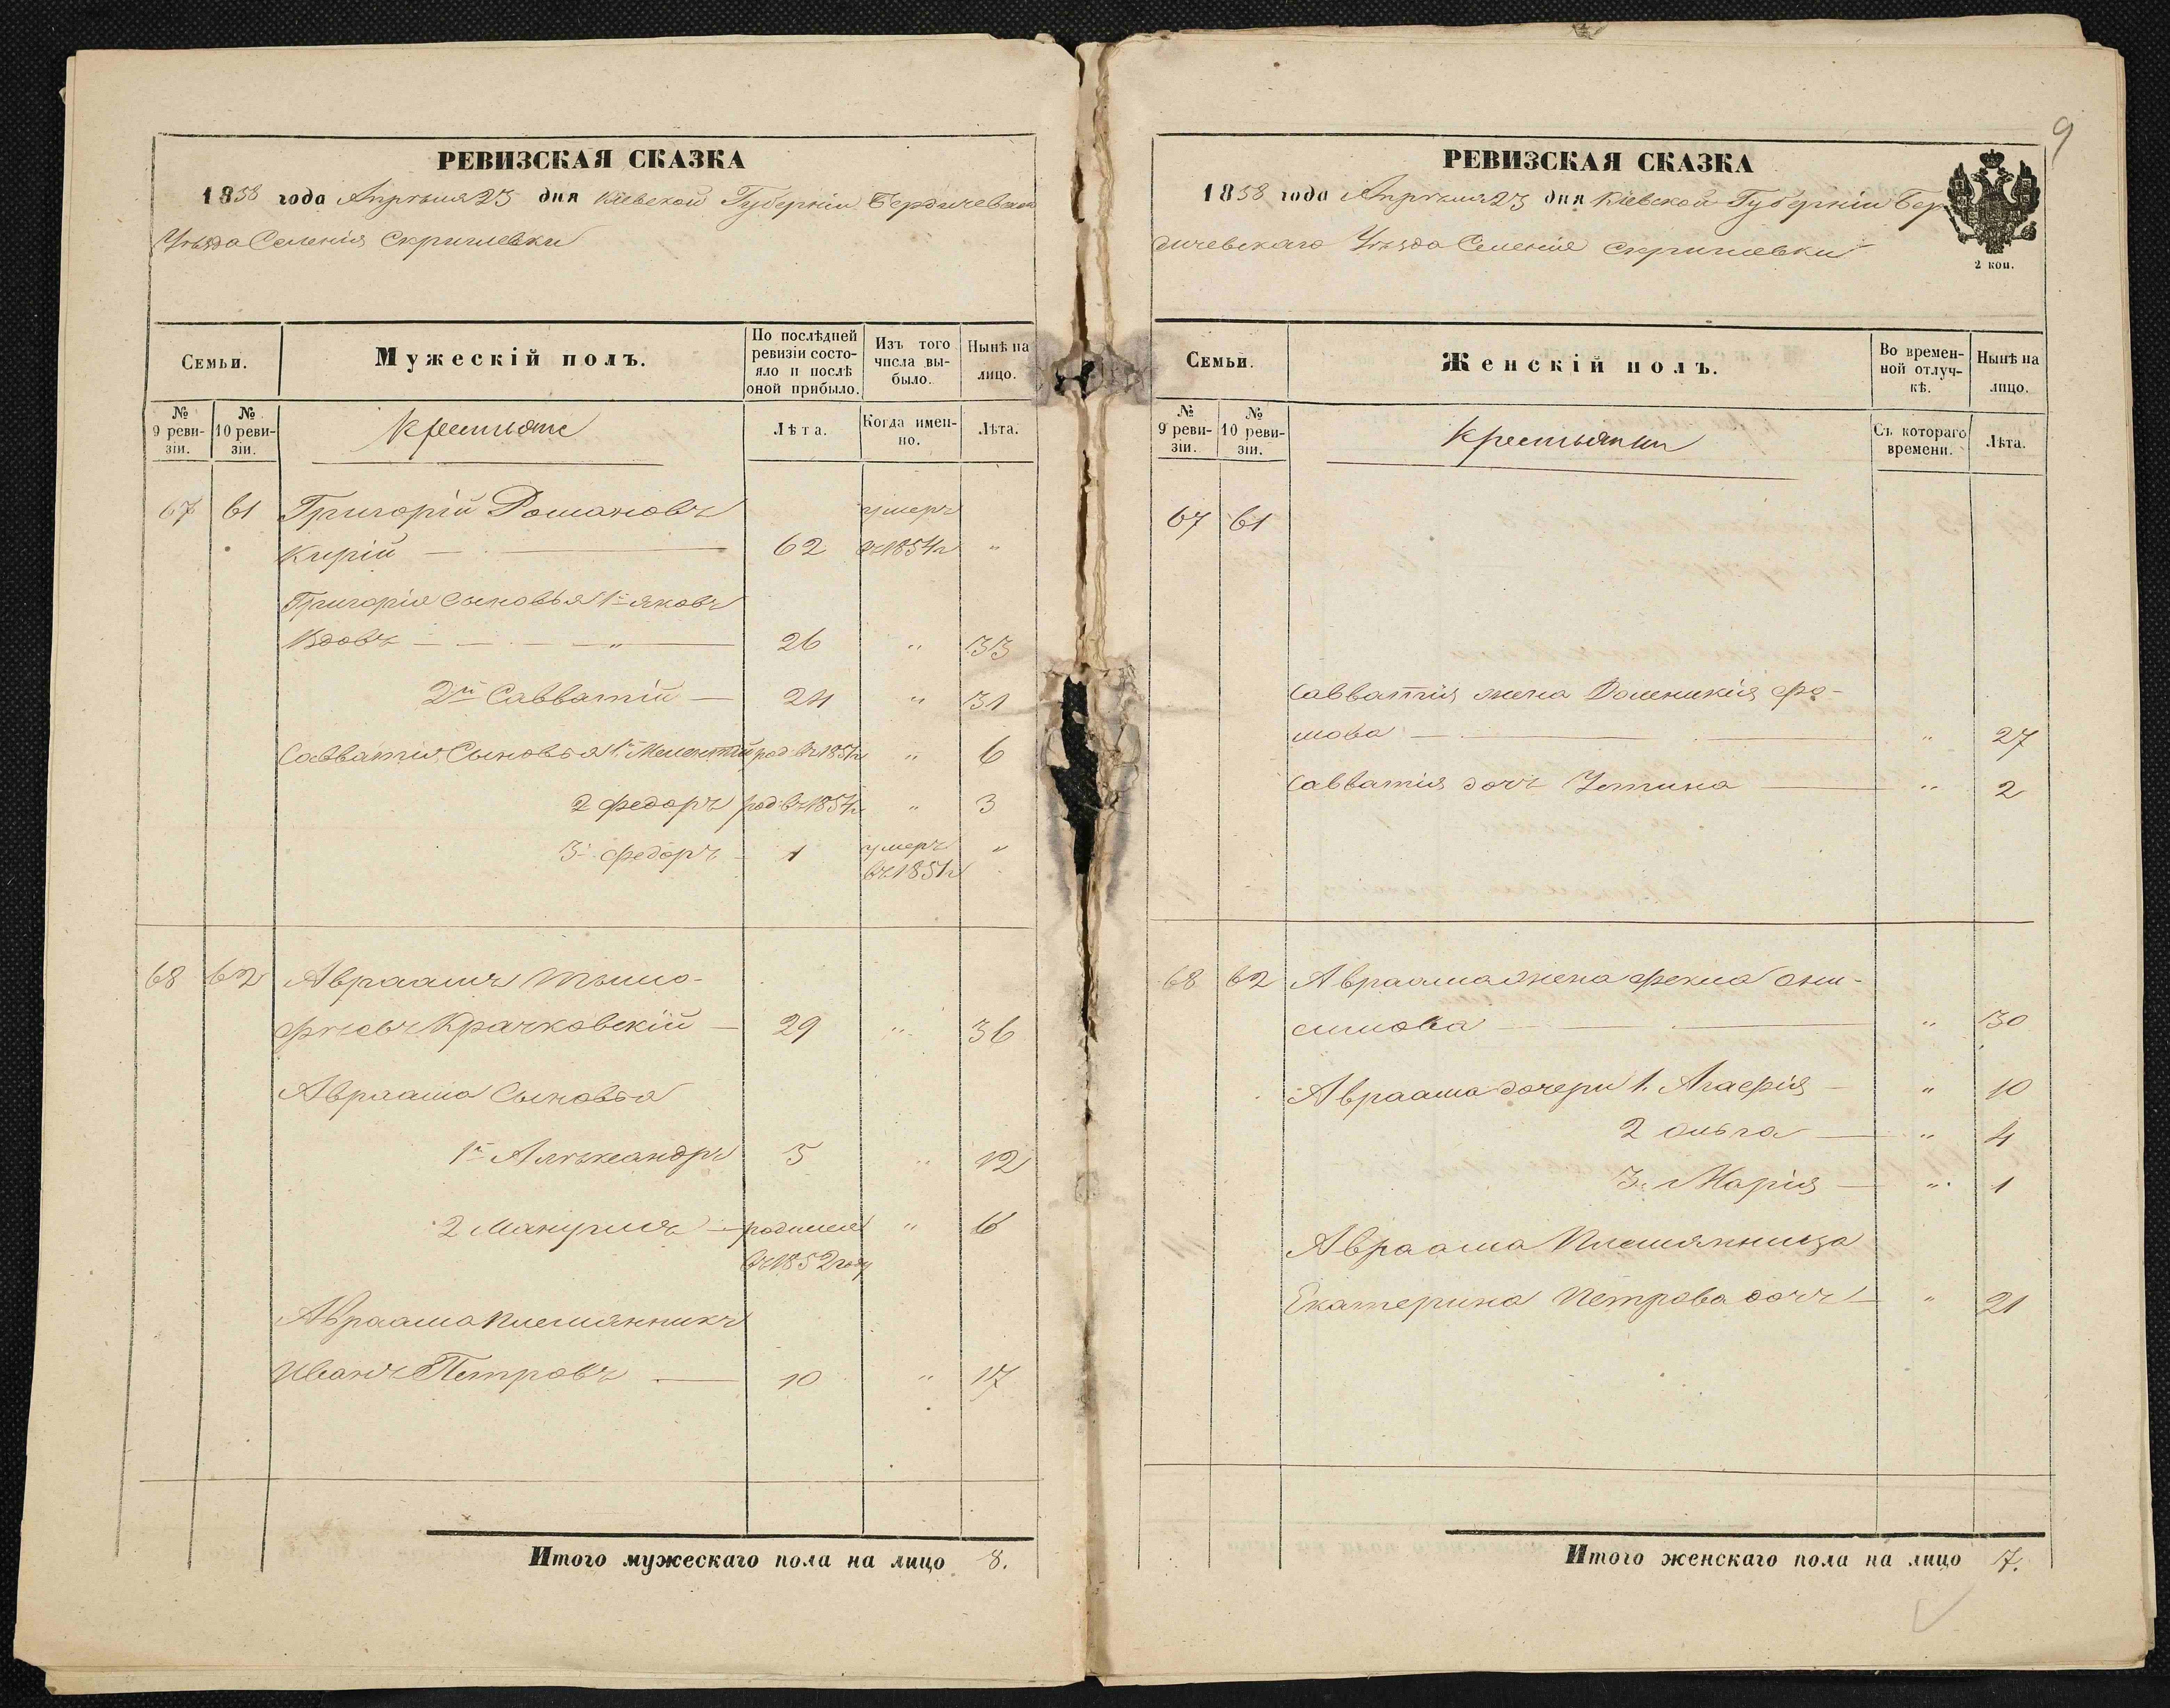 РЕВИЗСКАЯ СКАЗКА
1858 года Апрѣля 23 дня Кіевской Губерніи Бердичевскаго
Уѣзда Селенія Скригилевки
Семьи.
Мужескій полъ.
По послѣдней ревизіи состояло и послѣ оной прибыло.
Изъ того числа выбыло.
Нынѣ на лицо.
№ 9 ревизіи.
№ 10 ревизіи.
Крестьяне
Лѣта.
Когда именно.
Лѣта.
67 61 Григорій Романовъ умеръ
Кирій 62 въ 1854 г "
Григорія Сыновья 1й Яковъ
Вдовъ " 26 " 33
2й Савватій 24 " 31
Савватія Сыновья 1й Мелентій род. въ 1851 г " 6
2 Федоръ род. въ 1854 г " 3
3й Федоръ 1 умеръ "
въ 1851 г
68 62 Авраамъ Тымо-
феевъ Крачковскій 29 " 36
Авраама Сыновья
1й Алѣксандръ 5 " 12
2 Мануила родился " 6
въ 1852 году
Авраама племянникъ
Иванъ Петровъ 10 " 17
Итого мужескаго пола на лицо 8.
9
РЕВИЗСКАЯ СКАЗКА
1858 года Апрѣля 23 дня Кіевской Губерніи Бер
дичевскаго Уѣзда Селенія Скригилевки
2 коп.
Семьи.
Женскій полъ.
Во временной отлучкѣ.
Нынѣ на лицо.
№ 9 ревизіи.
№ 10 ревизіи.
Крестьянки
Съ котораго времени.
Лѣта.
67 61
Савватія жена Доменикія Фо-
мова " 27
Савватія дочь Устина " 2
68 62 Авраама жена Фекла Они-
симова " 30
Авраама дочери 1. Агафія " 10
2 Ольга " 4
3. Марія " 1
Авраама Племянница
Екатерина Петрова дочь " 21
Итого женскаго пола на лицо 7.